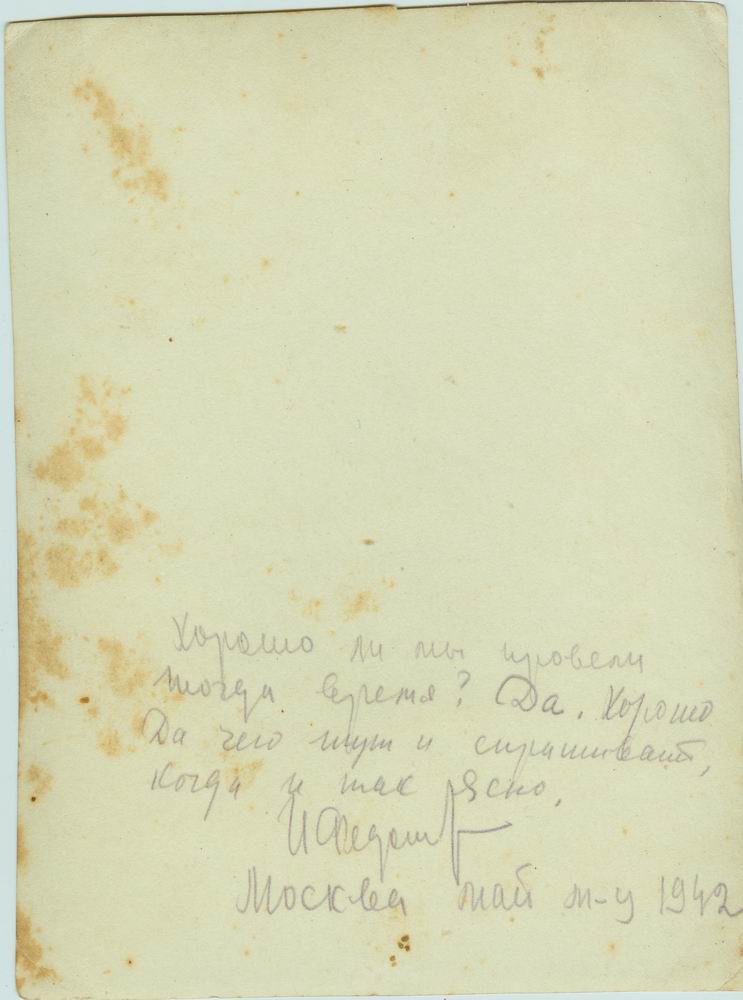 Хорошо ли мы провели
тогда время? Да. Хорошо
Да чего тут и спрашивать,
когда и так ясно.
Москва май м-ц 1942